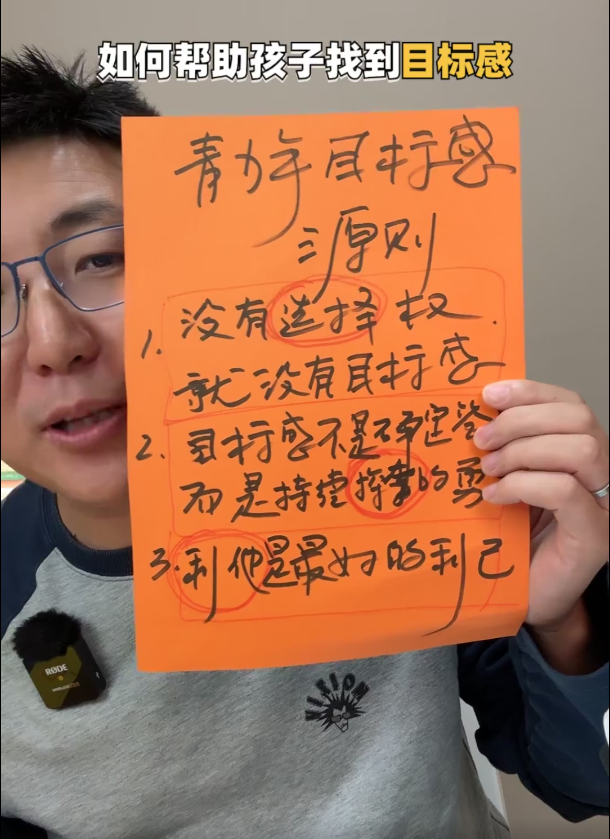 如何帮助孩子找到目标感
青少年目标感
三原则
1. 没有选择权
就没有目标感
2. 目标感不是确定答
而是持续探索的勇
3. 利他是最好的利己
RØDE